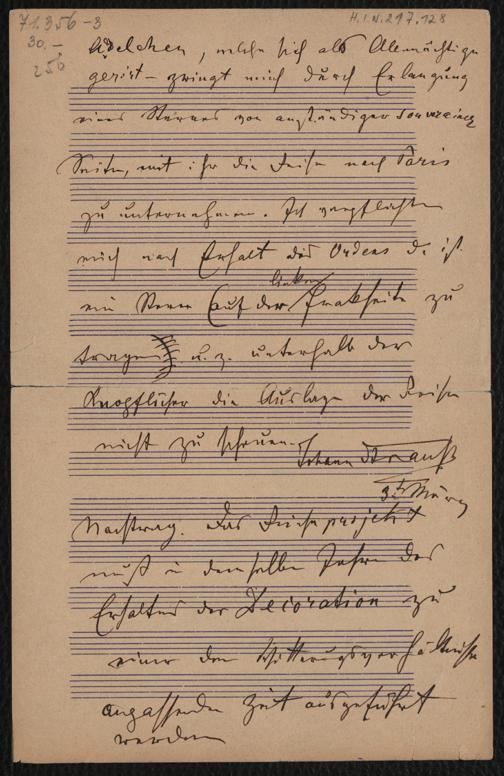 71.356-3
H.I.N. 217.128
30.-
256
Adelchen, welche sich als Allmächtige
gerirt - zwingt mich durch Erlangung
eines Sternes von anständiger souverainer
Seite, mit ihr die Reise nach Paris
zu unternehmen. Ich verpflichte
mich nach Erhalt des Ordens d. i.
linken
ein Stern (auf der Frakseite zu
tragen) u. z. unterhalb der
Knopflöcher die Auslage der Reise
nicht zu scheuen.
Johann Strauß
März
Nachtrag. Das Reiseprojekt
muß in demselben Jahre des
Erhaltes der Decoration zu
einer den Witterungsverhältnissen
anpassenden Zeit ausgeführt
werden